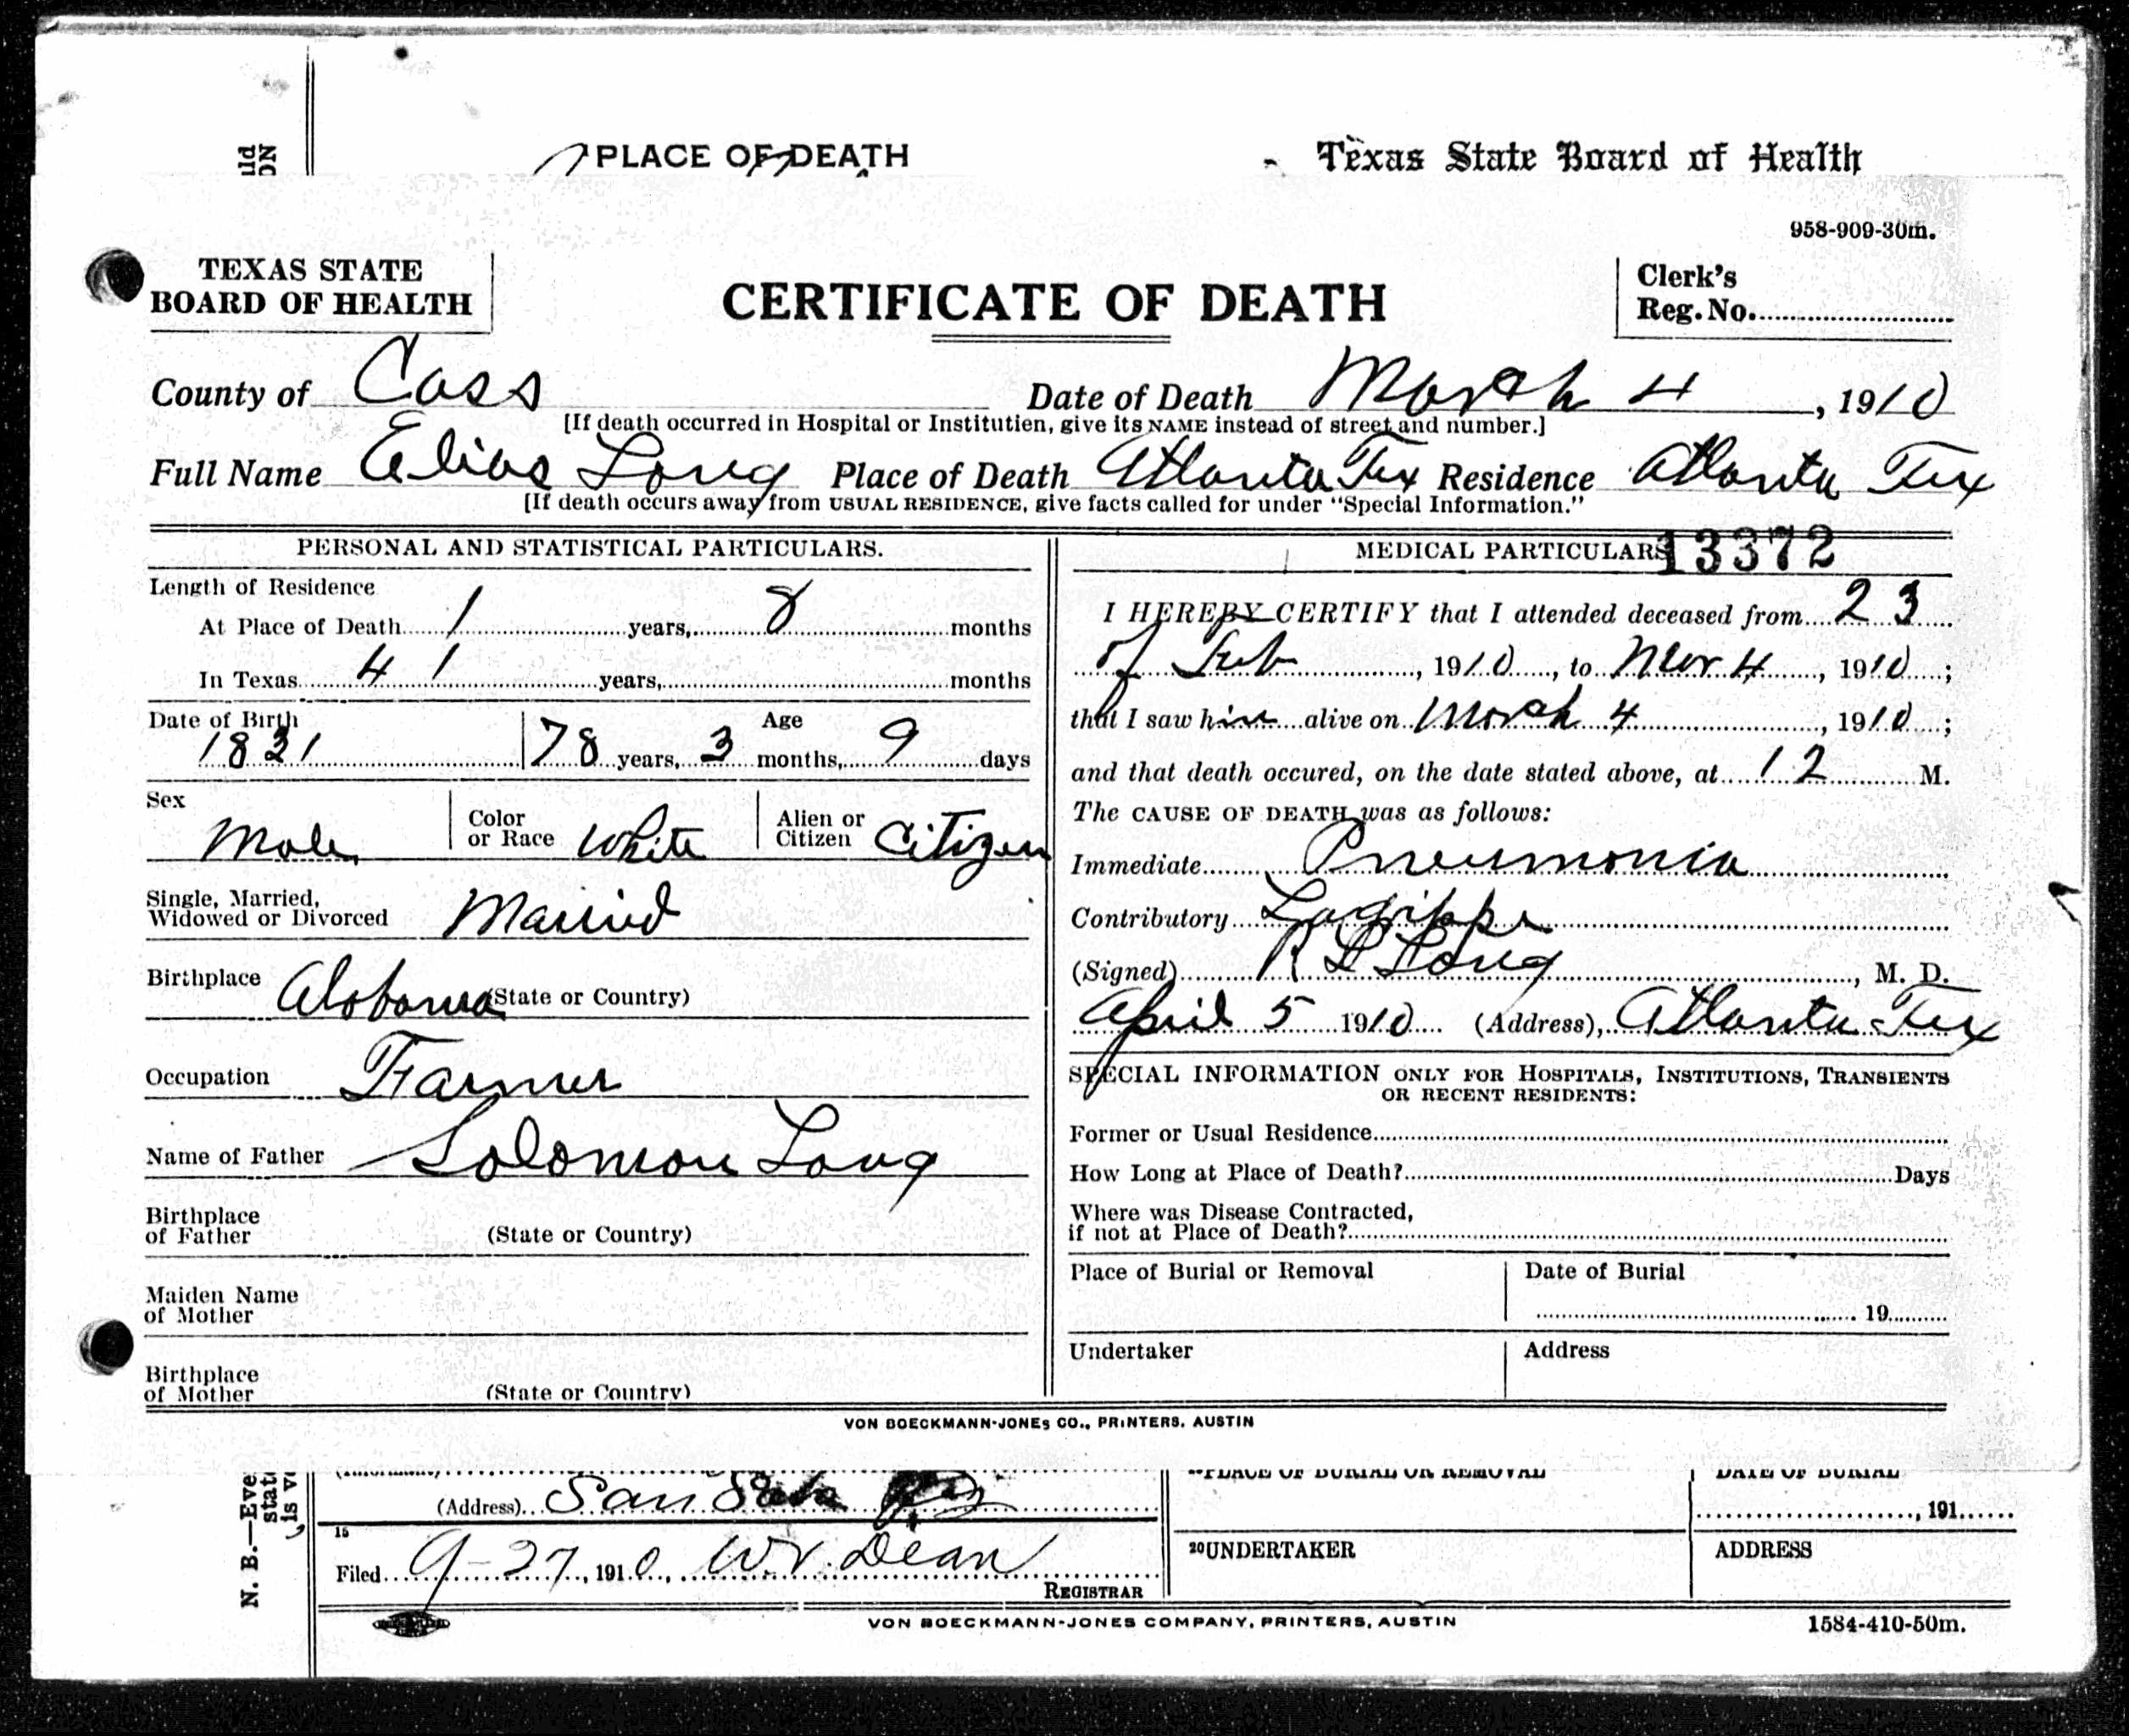 PLACE OF DEATH
Texas State Board of Health
958-909-30m.
TEXAS STATE
BOARD OF HEALTH
CERTIFICATE OF DEATH
Clerk's
Reg. No.
County of Cass Date of Death March 4, 1910
[If death occurred in Hospital or Institutien, give its NAME instead of street and number.]
Full Name Elias Long Place of Death Atlanta Tex Residence Atlanta Tex
[If death occurs away from USUAL RESIDENCE, give facts called for under "Special Information."
PERSONAL AND STATISTICAL PARTICULARS.
Length of Residence
At Place of Death 1 years, 8 months
In Texas 41 years, months
Date of Birth Age
1831 78 years, 3 months, 9 days
Sex Male Color or Race White Alien or Citizen Citizen
Single, Married,
Widowed or Divorced Married
Birthplace Alabama (State or Country)
Occupation Farmer
Name of Father Solomon Long
Birthplace
of Father (State or Country)
Maiden Name
of Mother
Birthplace
of Mother (State or Country)
MEDICAL PARTICULARS 13372
I HEREBY CERTIFY that I attended deceased from 23
of Feb, 1910, to Mar 4, 1910;
that I saw him alive on March 4, 1910;
and that death occured, on the date stated above, at 12 M.
The CAUSE OF DEATH was as follows:
Immediate Pneumonia
Contributory Lagrippe
(Signed) R L Long, M. D.
April 5 1910 (Address), Atlanta Tex
SPECIAL INFORMATION ONLY FOR HOSPITALS, INSTITUTIONS, TRANSIENTS
OR RECENT RESIDENTS:
Former or Usual Residence
How Long at Place of Death? Days
Where was Disease Contracted,
if not at Place of Death?
Place of Burial or Removal Date of Burial
19
Undertaker Address
VON BOECKMANN-JONES CO., PRINTERS, AUSTIN
N. B.—Eve
state
is v
(Informant)
(Address) San
15
Filed 9-27, 1910, W.V. Dean
REGISTRAR
PLACE OF BURIAL OR REMOVAL DATE OF BURIAL
, 191
20 UNDERTAKER ADDRESS
VON BOECKMANN-JONES COMPANY, PRINTERS, AUSTIN
1584-410-50m.